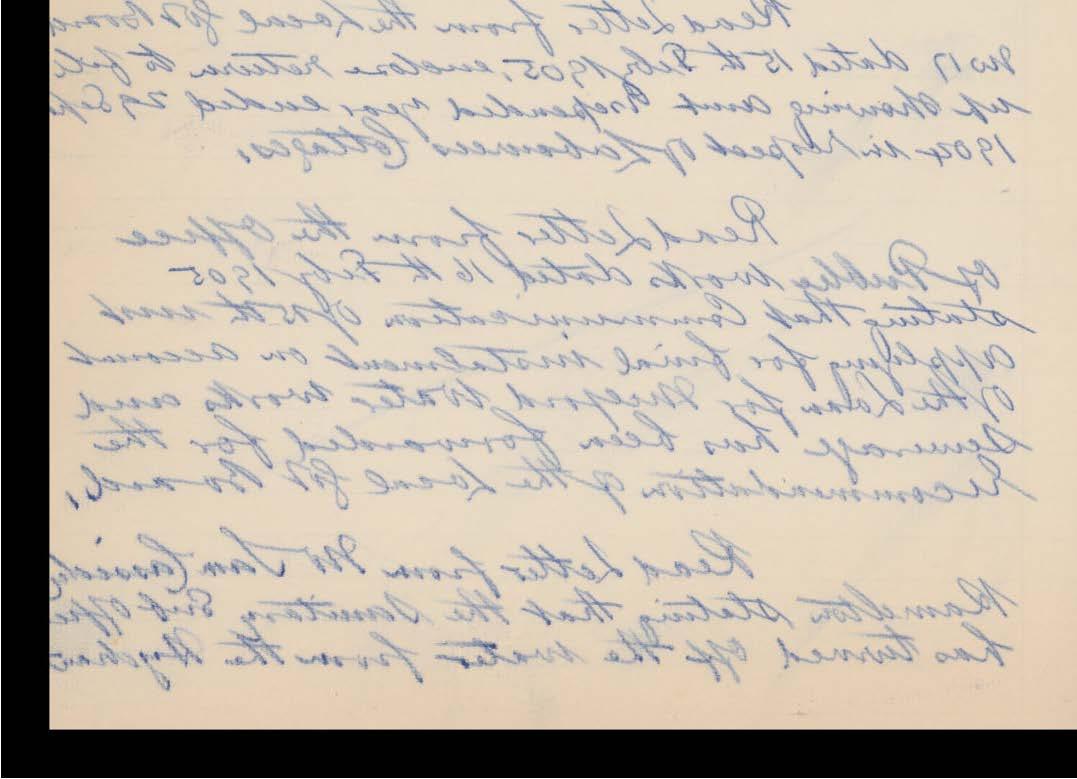 Read Letter from the Local Gov Board
No 17 dated 15th Feby 1905, enclose return to fill
up showing amt expended year ended 29 Sep
1904 in respect of Labourers Cottages.
Read Letter from the Office
of Public Works dated 16th Feby 1905
stating that Communication of 15th inst
applying for final instalment on account
of the Loan for Water Works and
Sewerage has been forwarded for the
recommendation of the Local Gov Board.
Read Letter from Mr Cassidy
stating that the Sanitary Sub Office
has turned off the water from the Hydrant